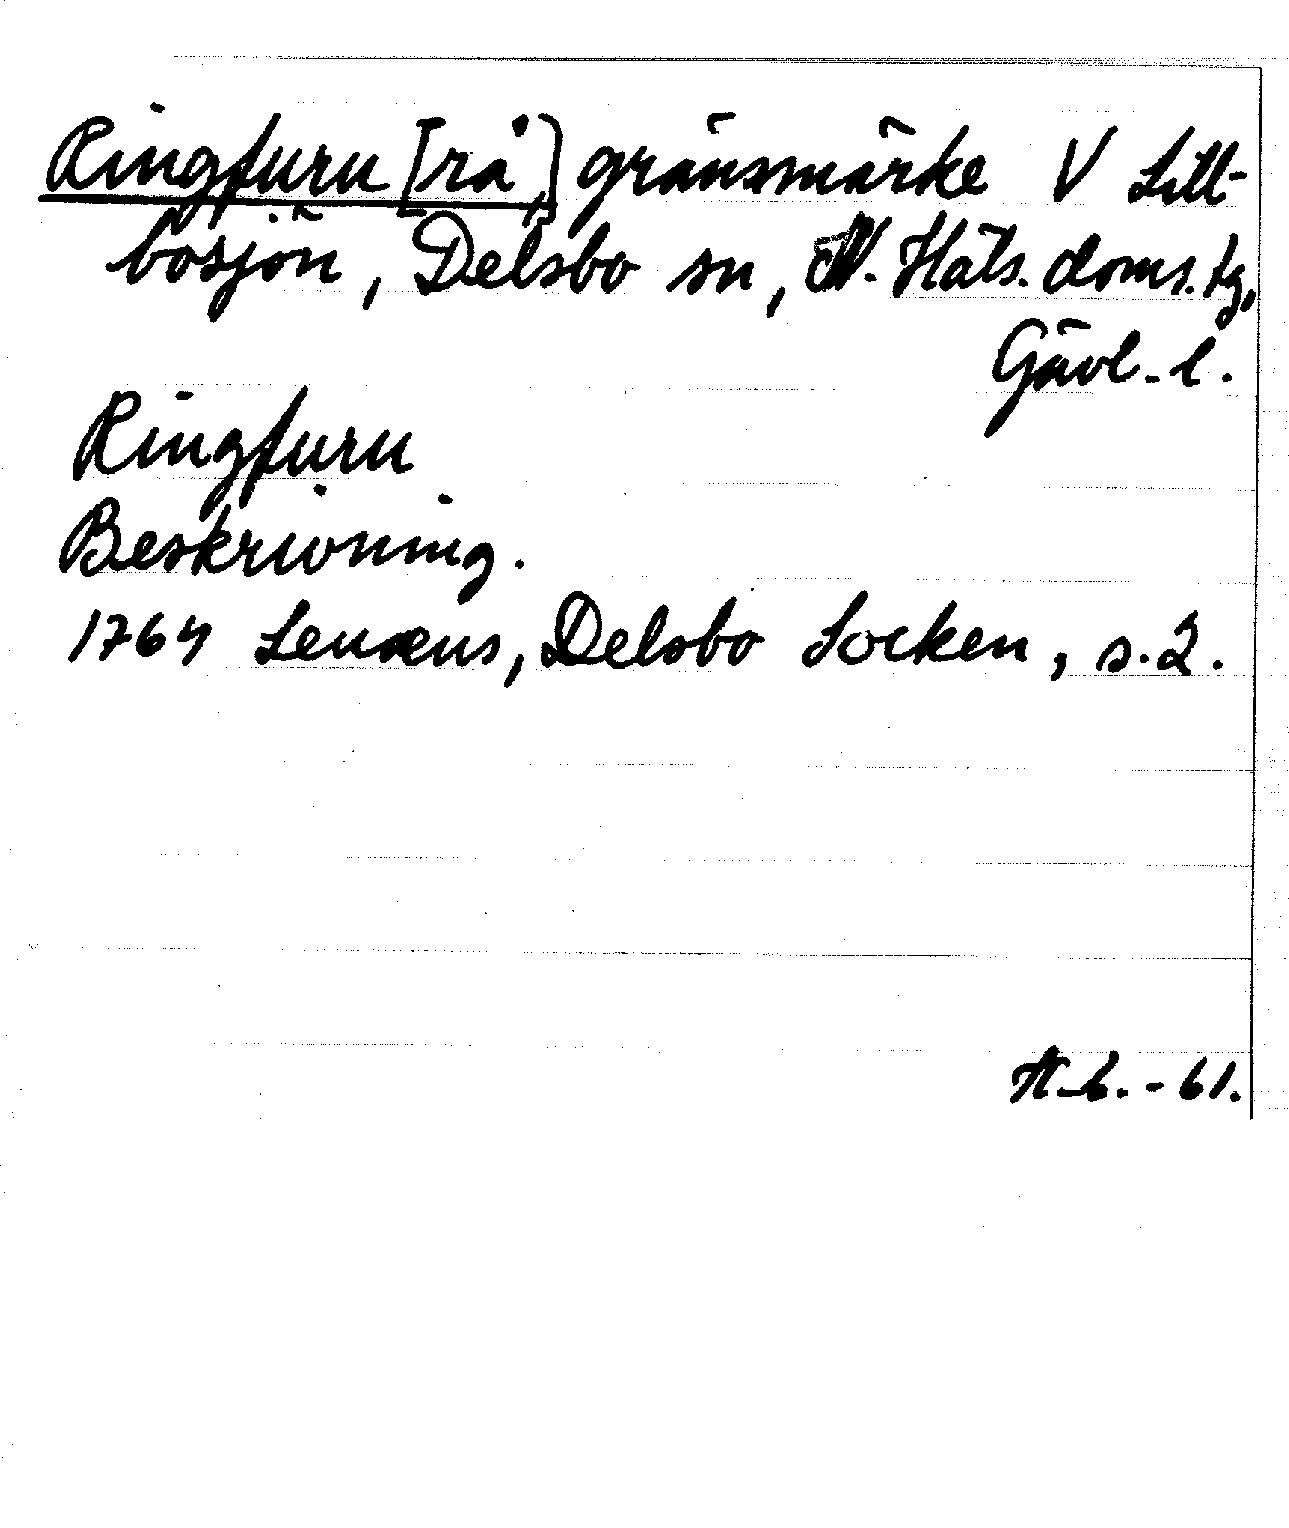 Ringfuru [rå], gränsmärke V Lill-
bosjön, Delsbo sn, N. Häls. doms. tg,
Gävl. l.
Ringfuru
Beskrivning.
1764 Lenæus, Delsbo Socken, s. 2.
-61.